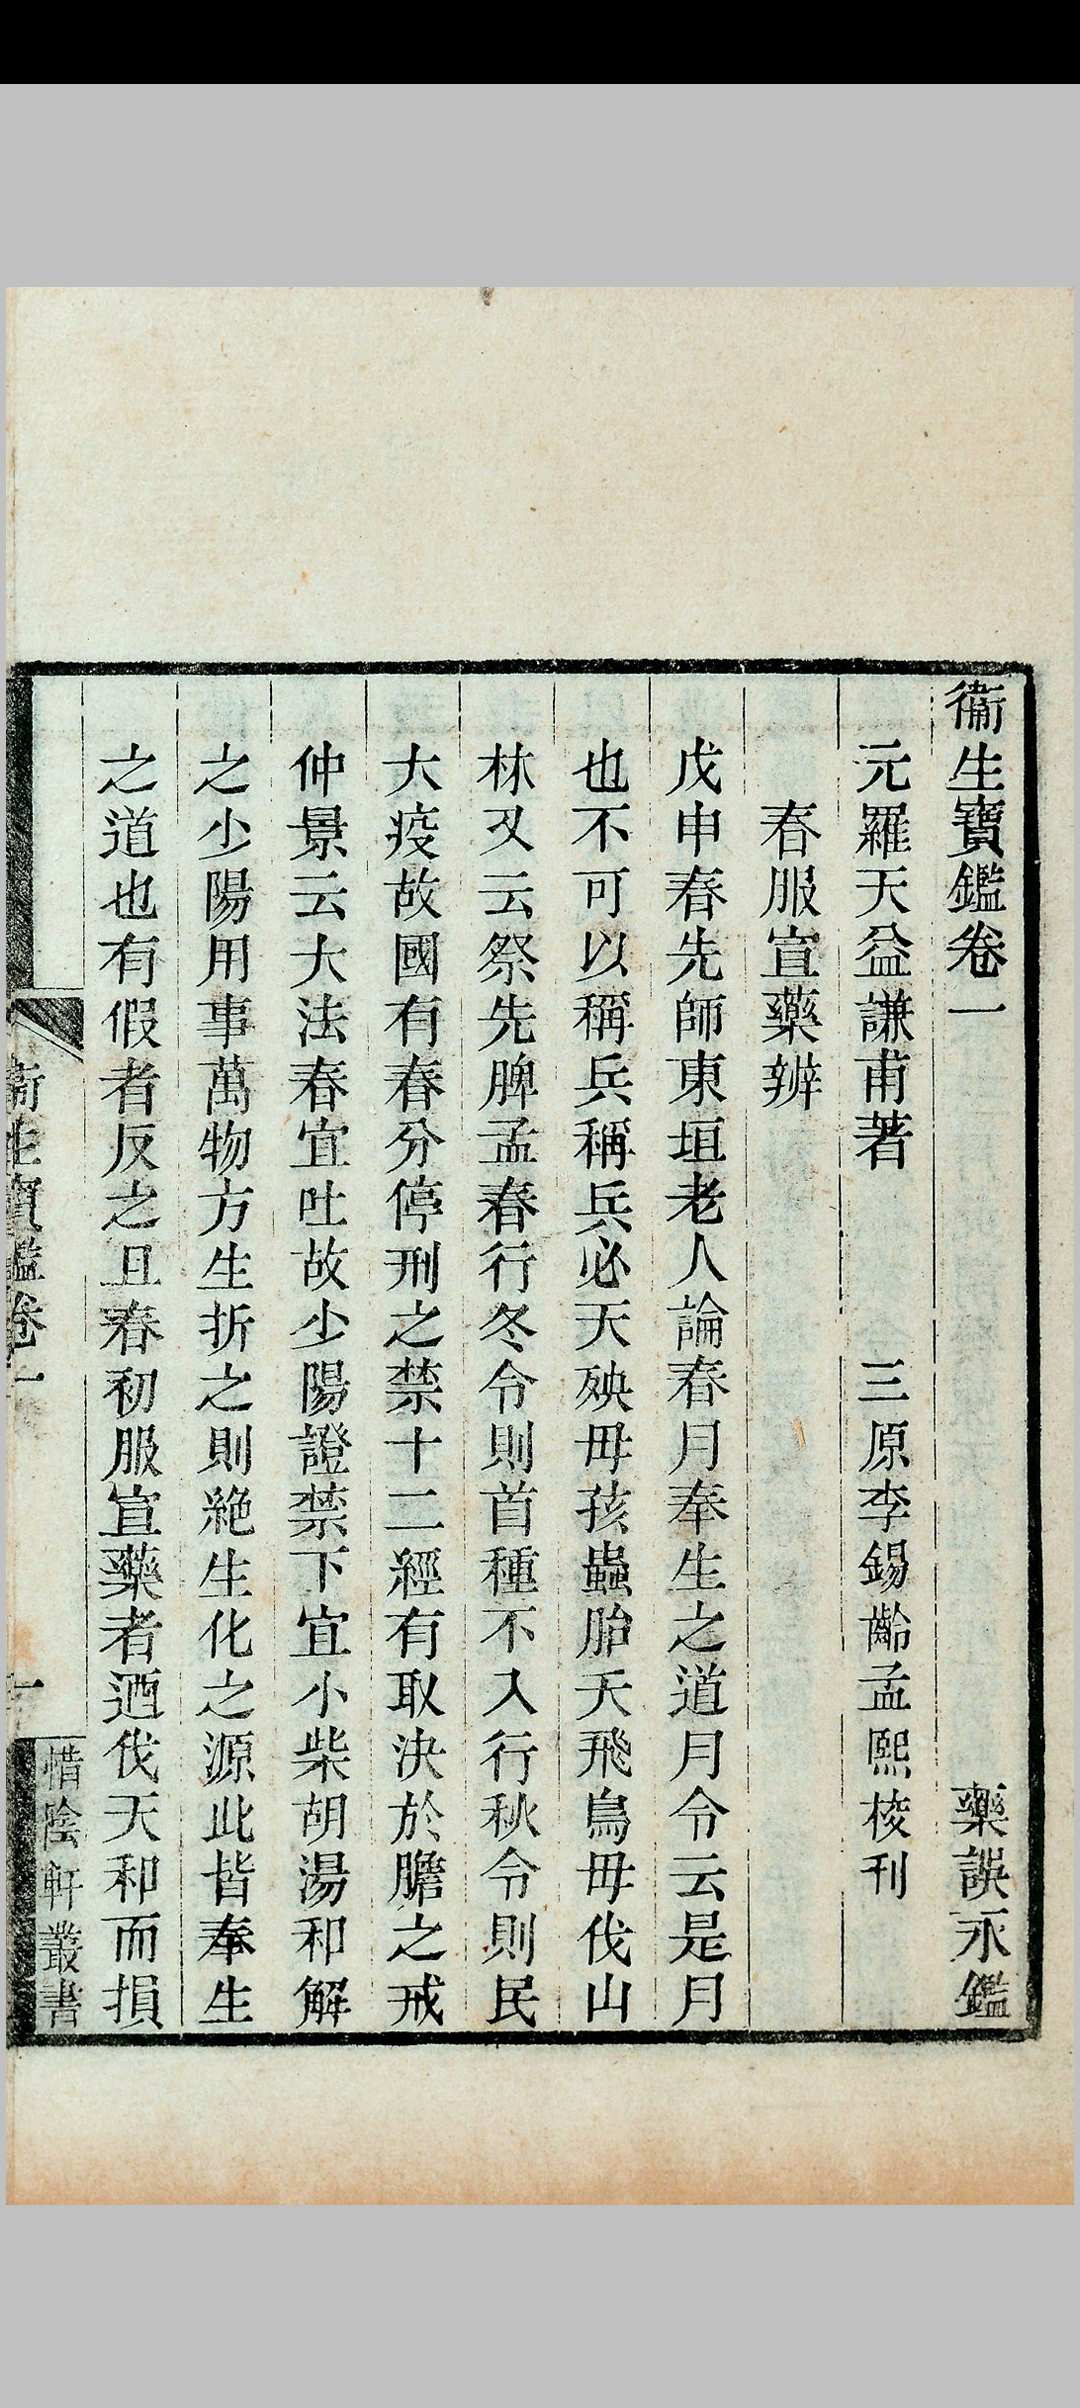 衞生寶鑑卷一 藥誤永鑑
元羅天益謙甫著 三原李錫齡孟熙校刊
春服宣藥辨
戊申春先師東垣老人論春月奉生之道月令云是月
也不可以稱兵稱兵必天殃毋孩蟲胎夭飛鳥毋伐山
林又云祭先脾孟春行冬令則首種不入行秋令則民
大疫故國有春分停刑之禁十二經有取決於膽之戒
仲景云大法春宜吐故少陽證禁下宜小柴胡湯和解
之少陽用事萬物方生折之則絶生化之源此皆奉生
之道也有假者反之且春初服宣藥者迺伐天和而損
衞生寶鑑卷一 一 惜陰軒叢書